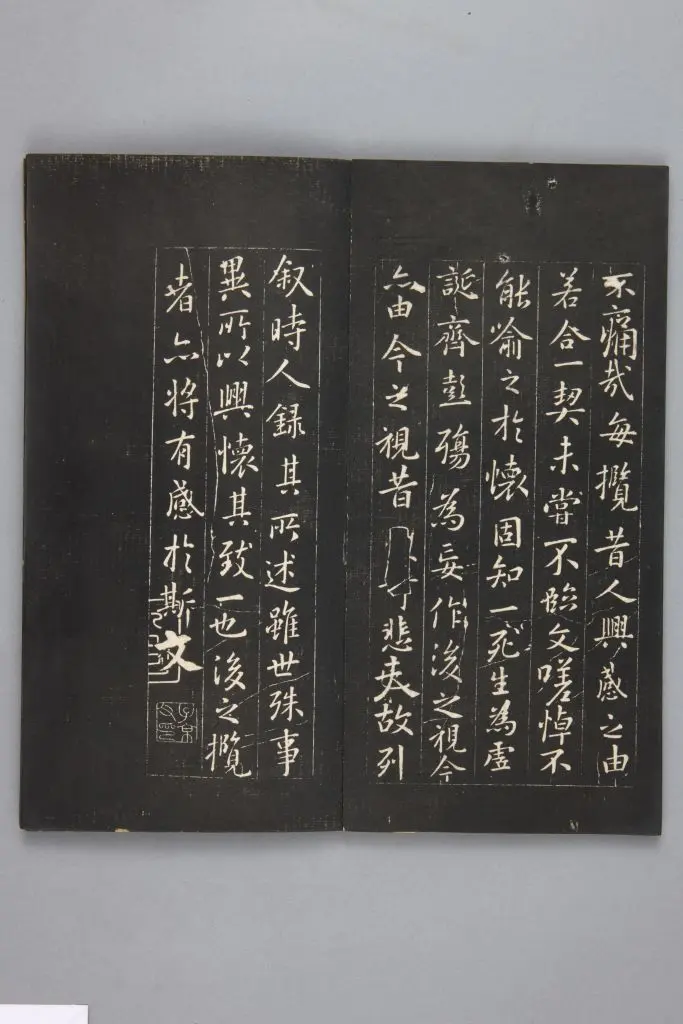 不痛哉每攬昔人興感之由
若合一契未嘗不臨文嗟悼不
能喻之於懷固知一死生為虛
誕齊彭殤為妄作後之視今
亦由今之視昔 悲夫故列
叙時人錄其所述雖世殊事
異所以興懷其致一也後之攬
者亦將有感於斯文